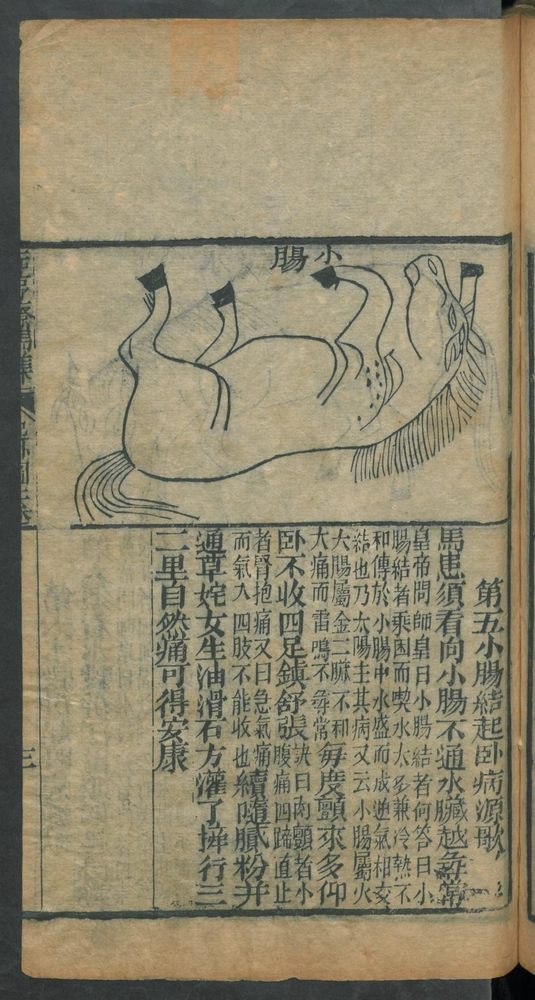 小
腸
第五小腸結起卧病源歌
馬患須看向小腸不通水臟越尋常
皇帝問師皇曰小腸結者何答曰小
腸結者乘困而喫水太多兼冷熱不
和傳於小腸中水盛而成逆氣相交
結也乃太陽主其病又云小腸屬火
大腸屬金二臟不和
大痛而雷鳴不尋常
每度顫來多仰
卧不收四足鎮舒張
訣曰肉顫者小
腹痛四蹄直止
者腎抱痛又曰急氣痛
而氣入四肢不能收也
續隨膩粉并
通草姹女生油滑石方灌了捧行三
二里自然痛可得安康
三